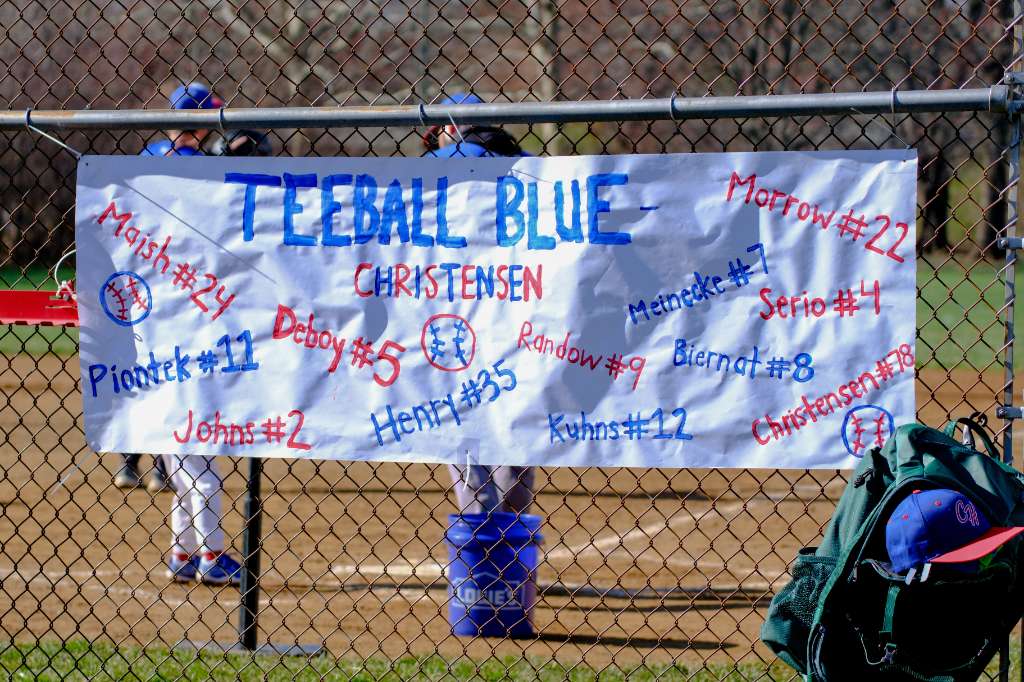 TEEBALL BLUE -
CHRISTENSEN
Morrow #22
Maish #24
Meinecke #7
Serio #4
Deboy #5
Randow #9
Piontek #11
Biernat #8
Henry #35
Christensen #78
Johns #2
Kuhns #12
LOWE'S